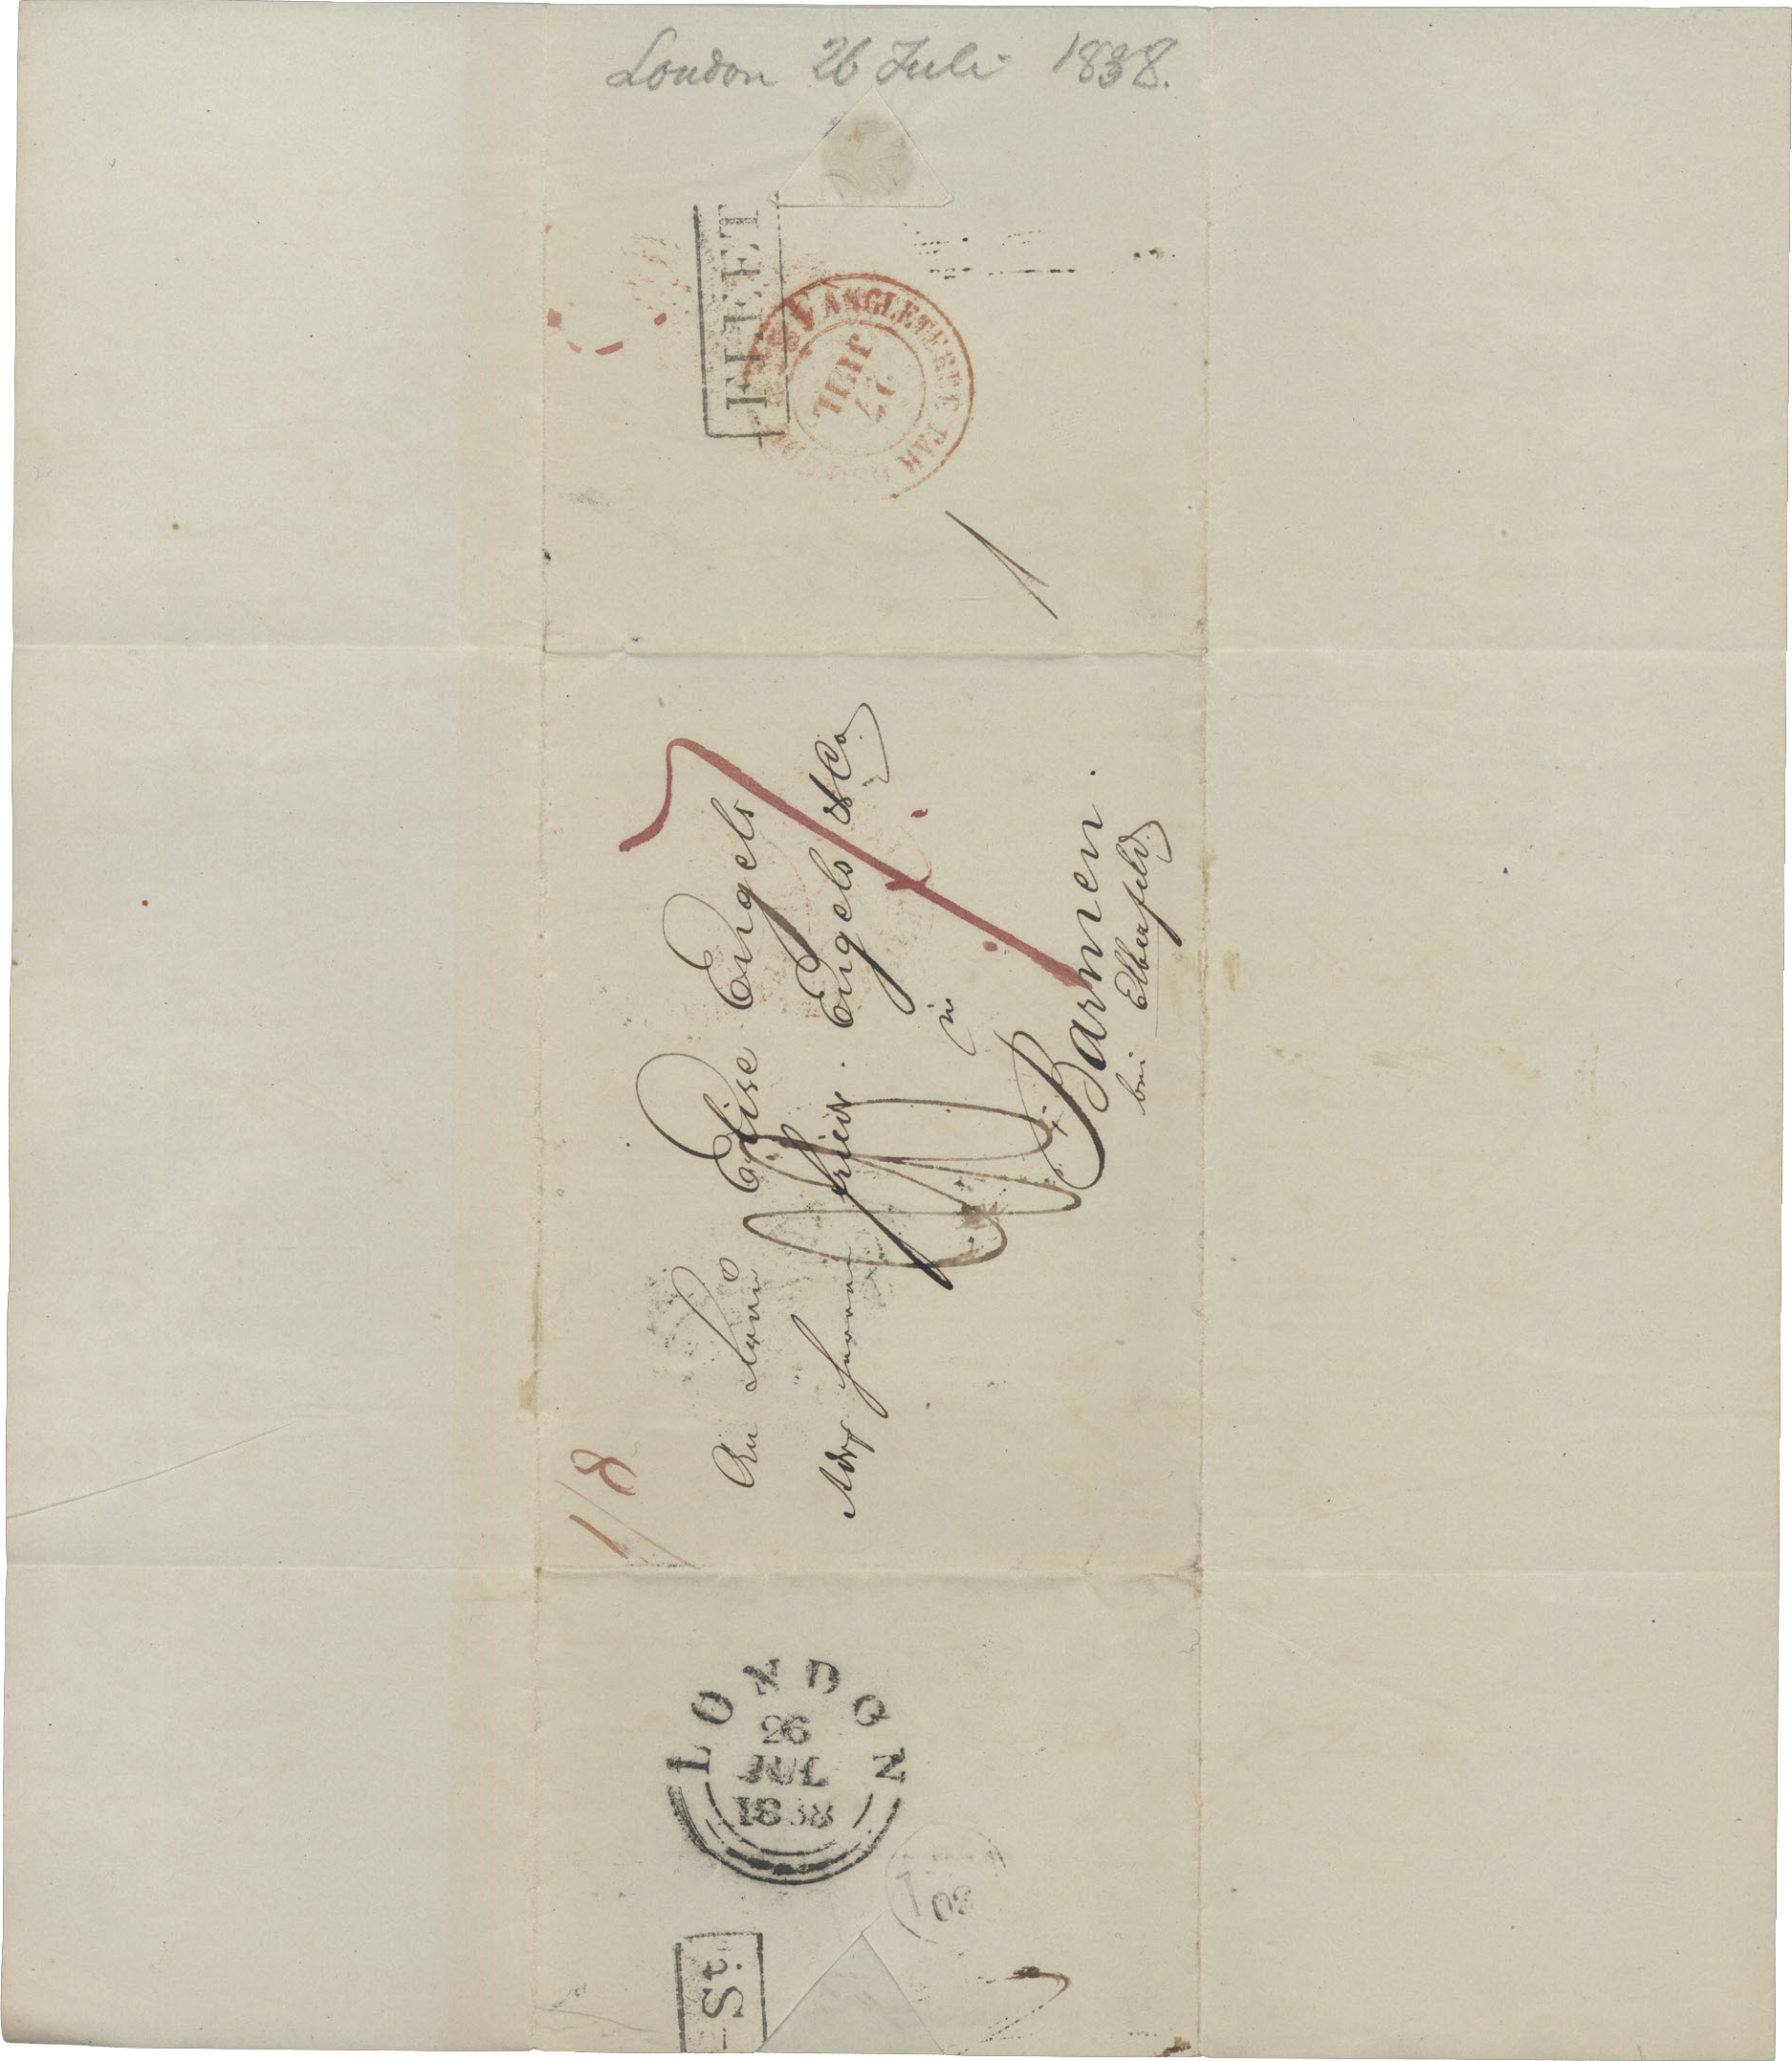 London 26 Juli 1838.
FLEET
ANGLETERRE PAR
27
JUIL
1
An Frau Elise Engels
Adr Herrn Friedr. Engels & Co.
in
Barmen.
bei Elberfeld
1/8
LONDON
26
JUL
1838
St.